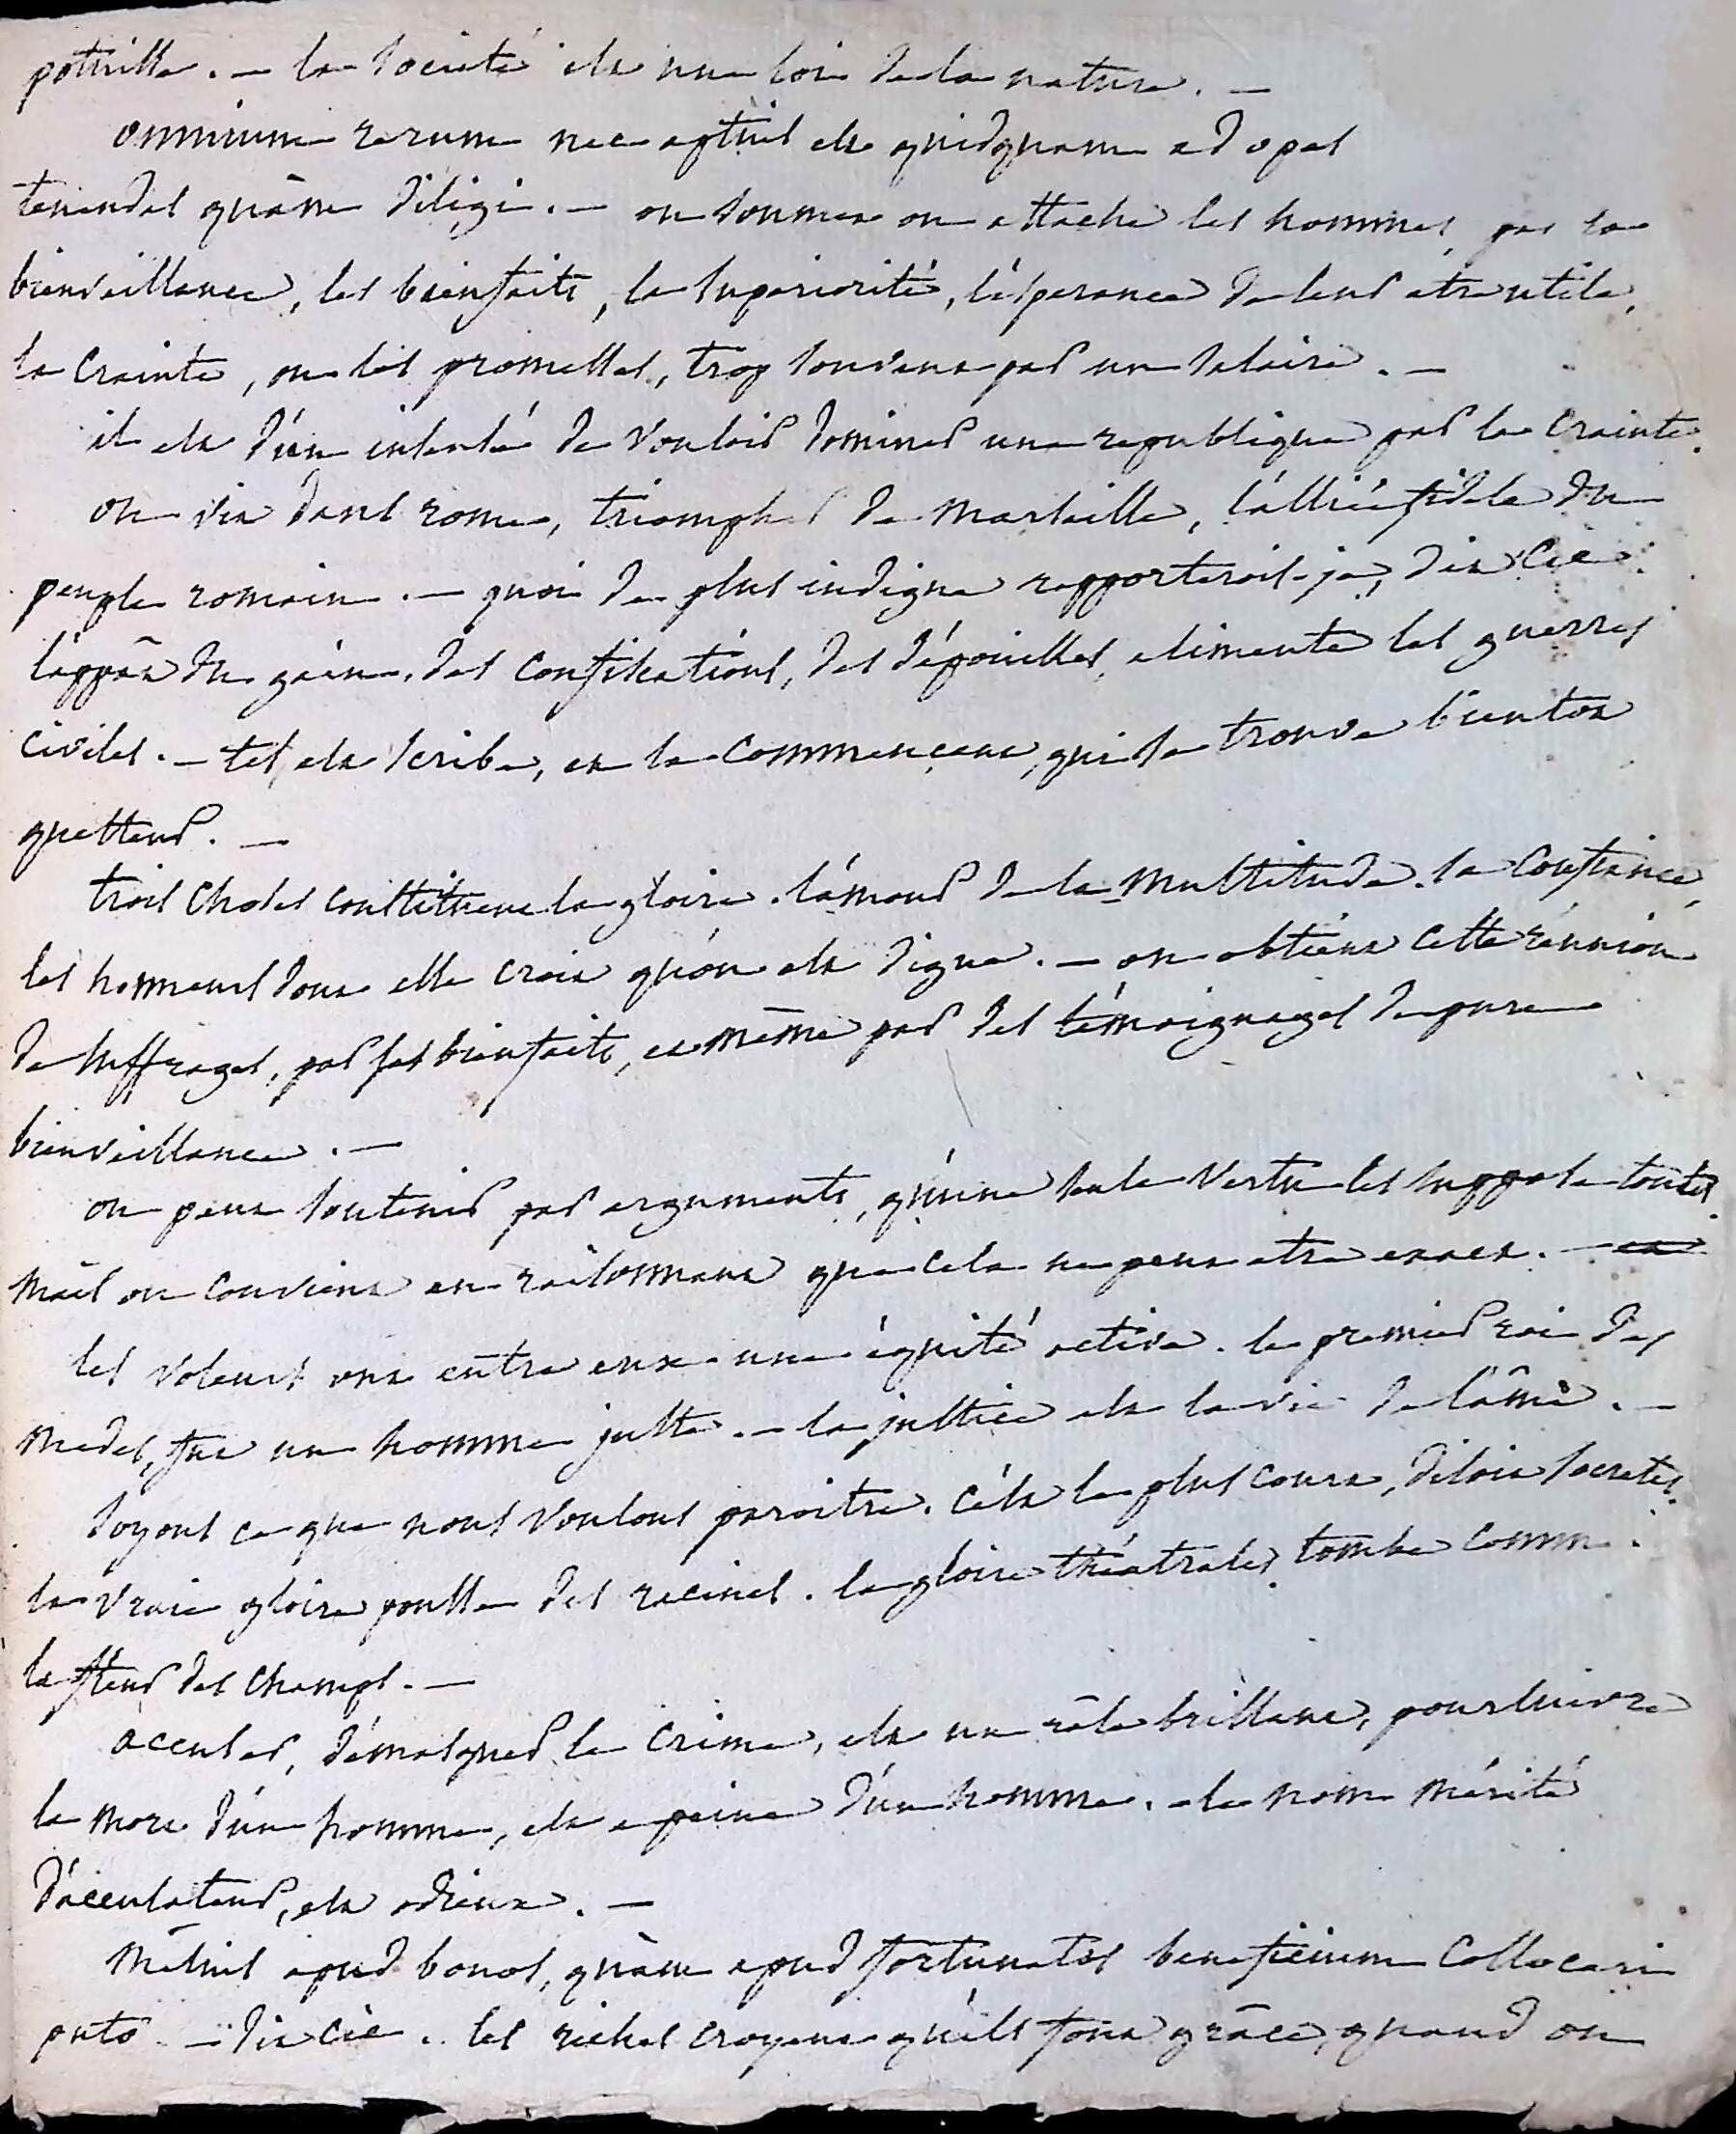 . — la société est une loi de la nature. —
omnium rerum nec aptius est quidquam ad opes
tenendas quàm diligi. — on soumet on attache les hommes, par sa
bienveillance, les bienfaits, la superiorité, l'ésperance de leur etre utile,
la crainte, ou les promesses, trop souvent par un salaire. —
il est d'un insensé de vouloir dominer une republique par la crainte.
on vit dans rome, triompher de marseille, l'alliée fidele du
peuple romain. — quoi de plus indigne rapporterois-je, dit Cic.
l'appât du gain, des confiscations, des dépouilles, alimente les guerres
civiles. — tel est scribe, en la commençant, qui se trouve bientot
questeur. —
trois choses constituent la gloire. l'amour de la multitude. sa confiance,
les honneurs dont elle croit qu'on est digne. — on obtient cette réunion
de suffrages, par ses bienfaits, et même par des témoignages de pure
bienveillance. —
on peut soutenir par arguments, qu'une seule vertu les suppose toutes.
mais on convient en raisonnant que cela ne peut etre exact. —
les voleurs ont entre eux une équité active. le premier roi des
medes, fut un homme juste. — la justice est la vie de l'âme. —
soyons ce que nous voulons paroitre. c'est le plus court, disoit socrates.
la vraie gloire pousse des racines. la gloire théatrales, tombe comme
la fleur des champs. —
accuser, démasquer le crime, est un rôle brillant, poursuivre
la mort d'un homme, est a peine d'un homme. — le nom mérité
d'accusateur, est odieux. —
melius apud bonos, quàm apud fortunatos beneficium collocari
puto — dit cic. les riches croyent qu'ils font grâce, quand on